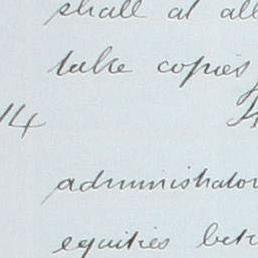 shall at all
take copies
14
administrator
equities